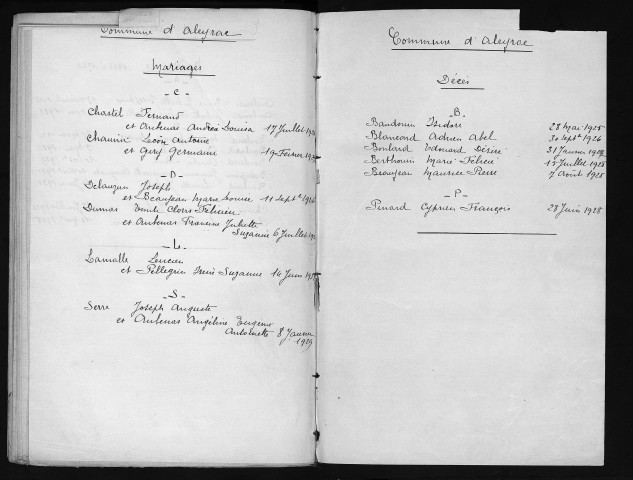 Commune d'Aleyrac
Mariages
- C -
Chastel Fernand
et Autenas Andréa Louisa 17 Juillet
Chauvin Léon Antoine
et Gery Germaine 19 Février
- D -
Delauzun Joseph
et Beaujean Marie Louise 11 Sept
Dumas Emile Clovis Félicien
et Autenas Francine Juliette
Suzanne 6 Juillet
- L -
Lamalle Lucien
et Pellegrin Irène Suzanne 14 Juin
- S -
Serre Joseph Auguste
et Autenas Angéline Eugénie
Antoinette 8 Janvier
1929
Commune d'Aleyrac
Décès
- B -
Baudouin Isidore 28 Mai 1925
Blancard Adrien Abel 30 Sept 1926
Boulard Edouard Désiré 31 Janvier
Berthouin Marie Félicie 15 Juillet 1928
Beaujean Maurice Pierre 7 Août 1928
- P -
Pinard Cyprien François 23 Juin 1928